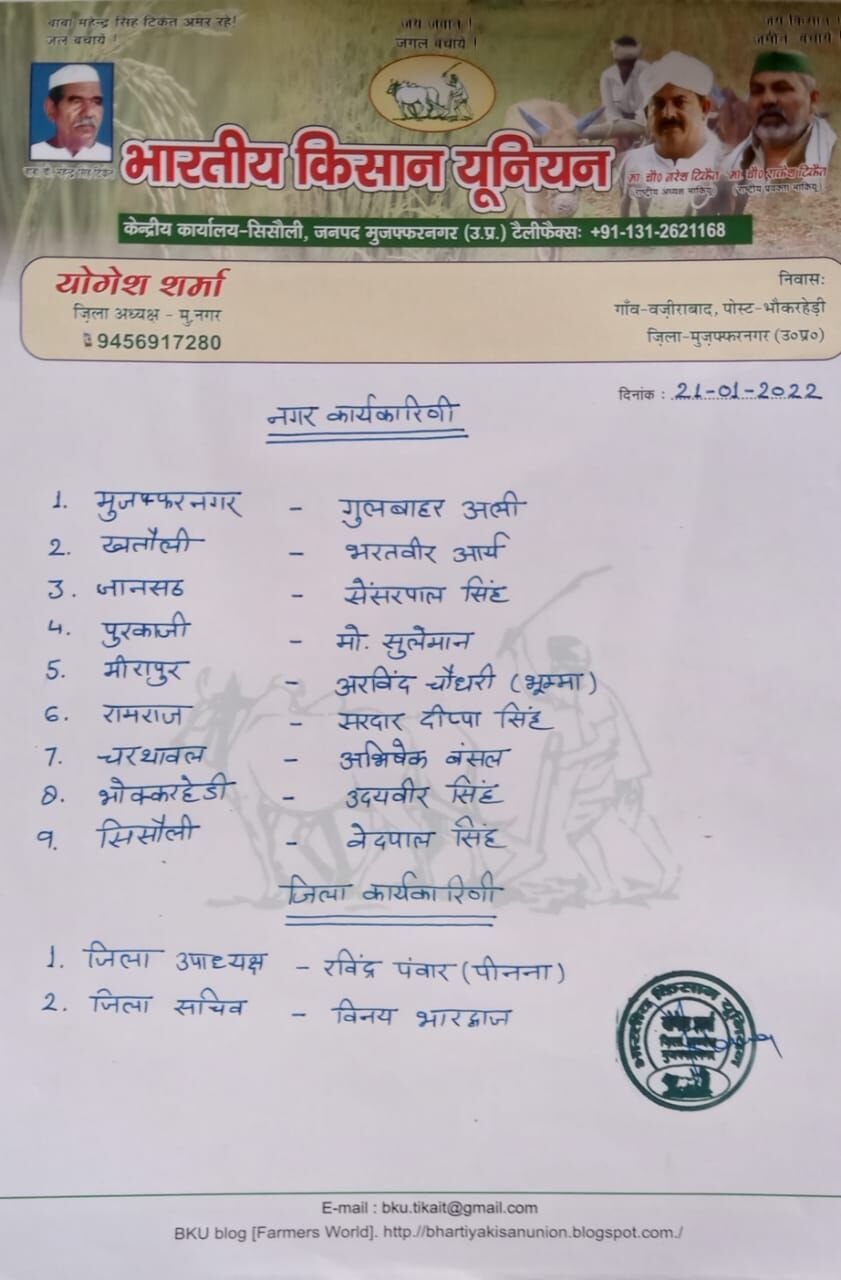 बाबा महेन्द्र सिंह टिकैत अमर रहे!
जल बचाये !
जय जवान !
जंगल बचाये !
जय किसान !
जमीन बचाये !
भारतीय किसान यूनियन
मा चौ० नरेश टिकैत
(राष्ट्रीय अध्यक्ष भाकियू)
मा चौ० राकेश टिकैत
(राष्ट्रीय प्रवक्ता भाकियू)
केन्द्रीय कार्यालय-सिसौली, जनपद मुजफ्फरनगर (उ.प्र.) टैलीफैक्सः +91-131-2621168
योगेश शर्मा
ज़िला अध्यक्ष - मु.नगर
9456917280
निवासः
गाँव-वज़ीराबाद, पोस्ट-भौकरहेड़ी
ज़िला-मुज़फ्फरनगर (उ०प्र०)
दिनांक : 21-01-2022
नगर कार्यकारिणी
1. मुजफ्फरनगर - गुलबाहर अली
2. खतौली - भरतवीर आर्य
3. जानसठ - सेंसरपाल सिंह
4. पुरकाजी - मो. सुलेमान
5. मीरापुर - अरविंद चौधरी (भूम्मा)
6. रामराज - सरदार दीप्पा सिंह
7. चरथावल - अभिषेक बंसल
8. भोक्करहेडी - उदयवीर सिंह
9. सिसौली - वेदपाल सिंह
जिला कार्यकारिणी
1. जिला उपाध्यक्ष - रविंद्र पंवार (पीनना)
2. जिला सचिव - विनय भारद्वाज
भारतीय किसान यूनियन
E-mail : bku.tikait@gmail.com
BKU blog [Farmers World]. http://bhartiyakisanunion.blogspot.com./